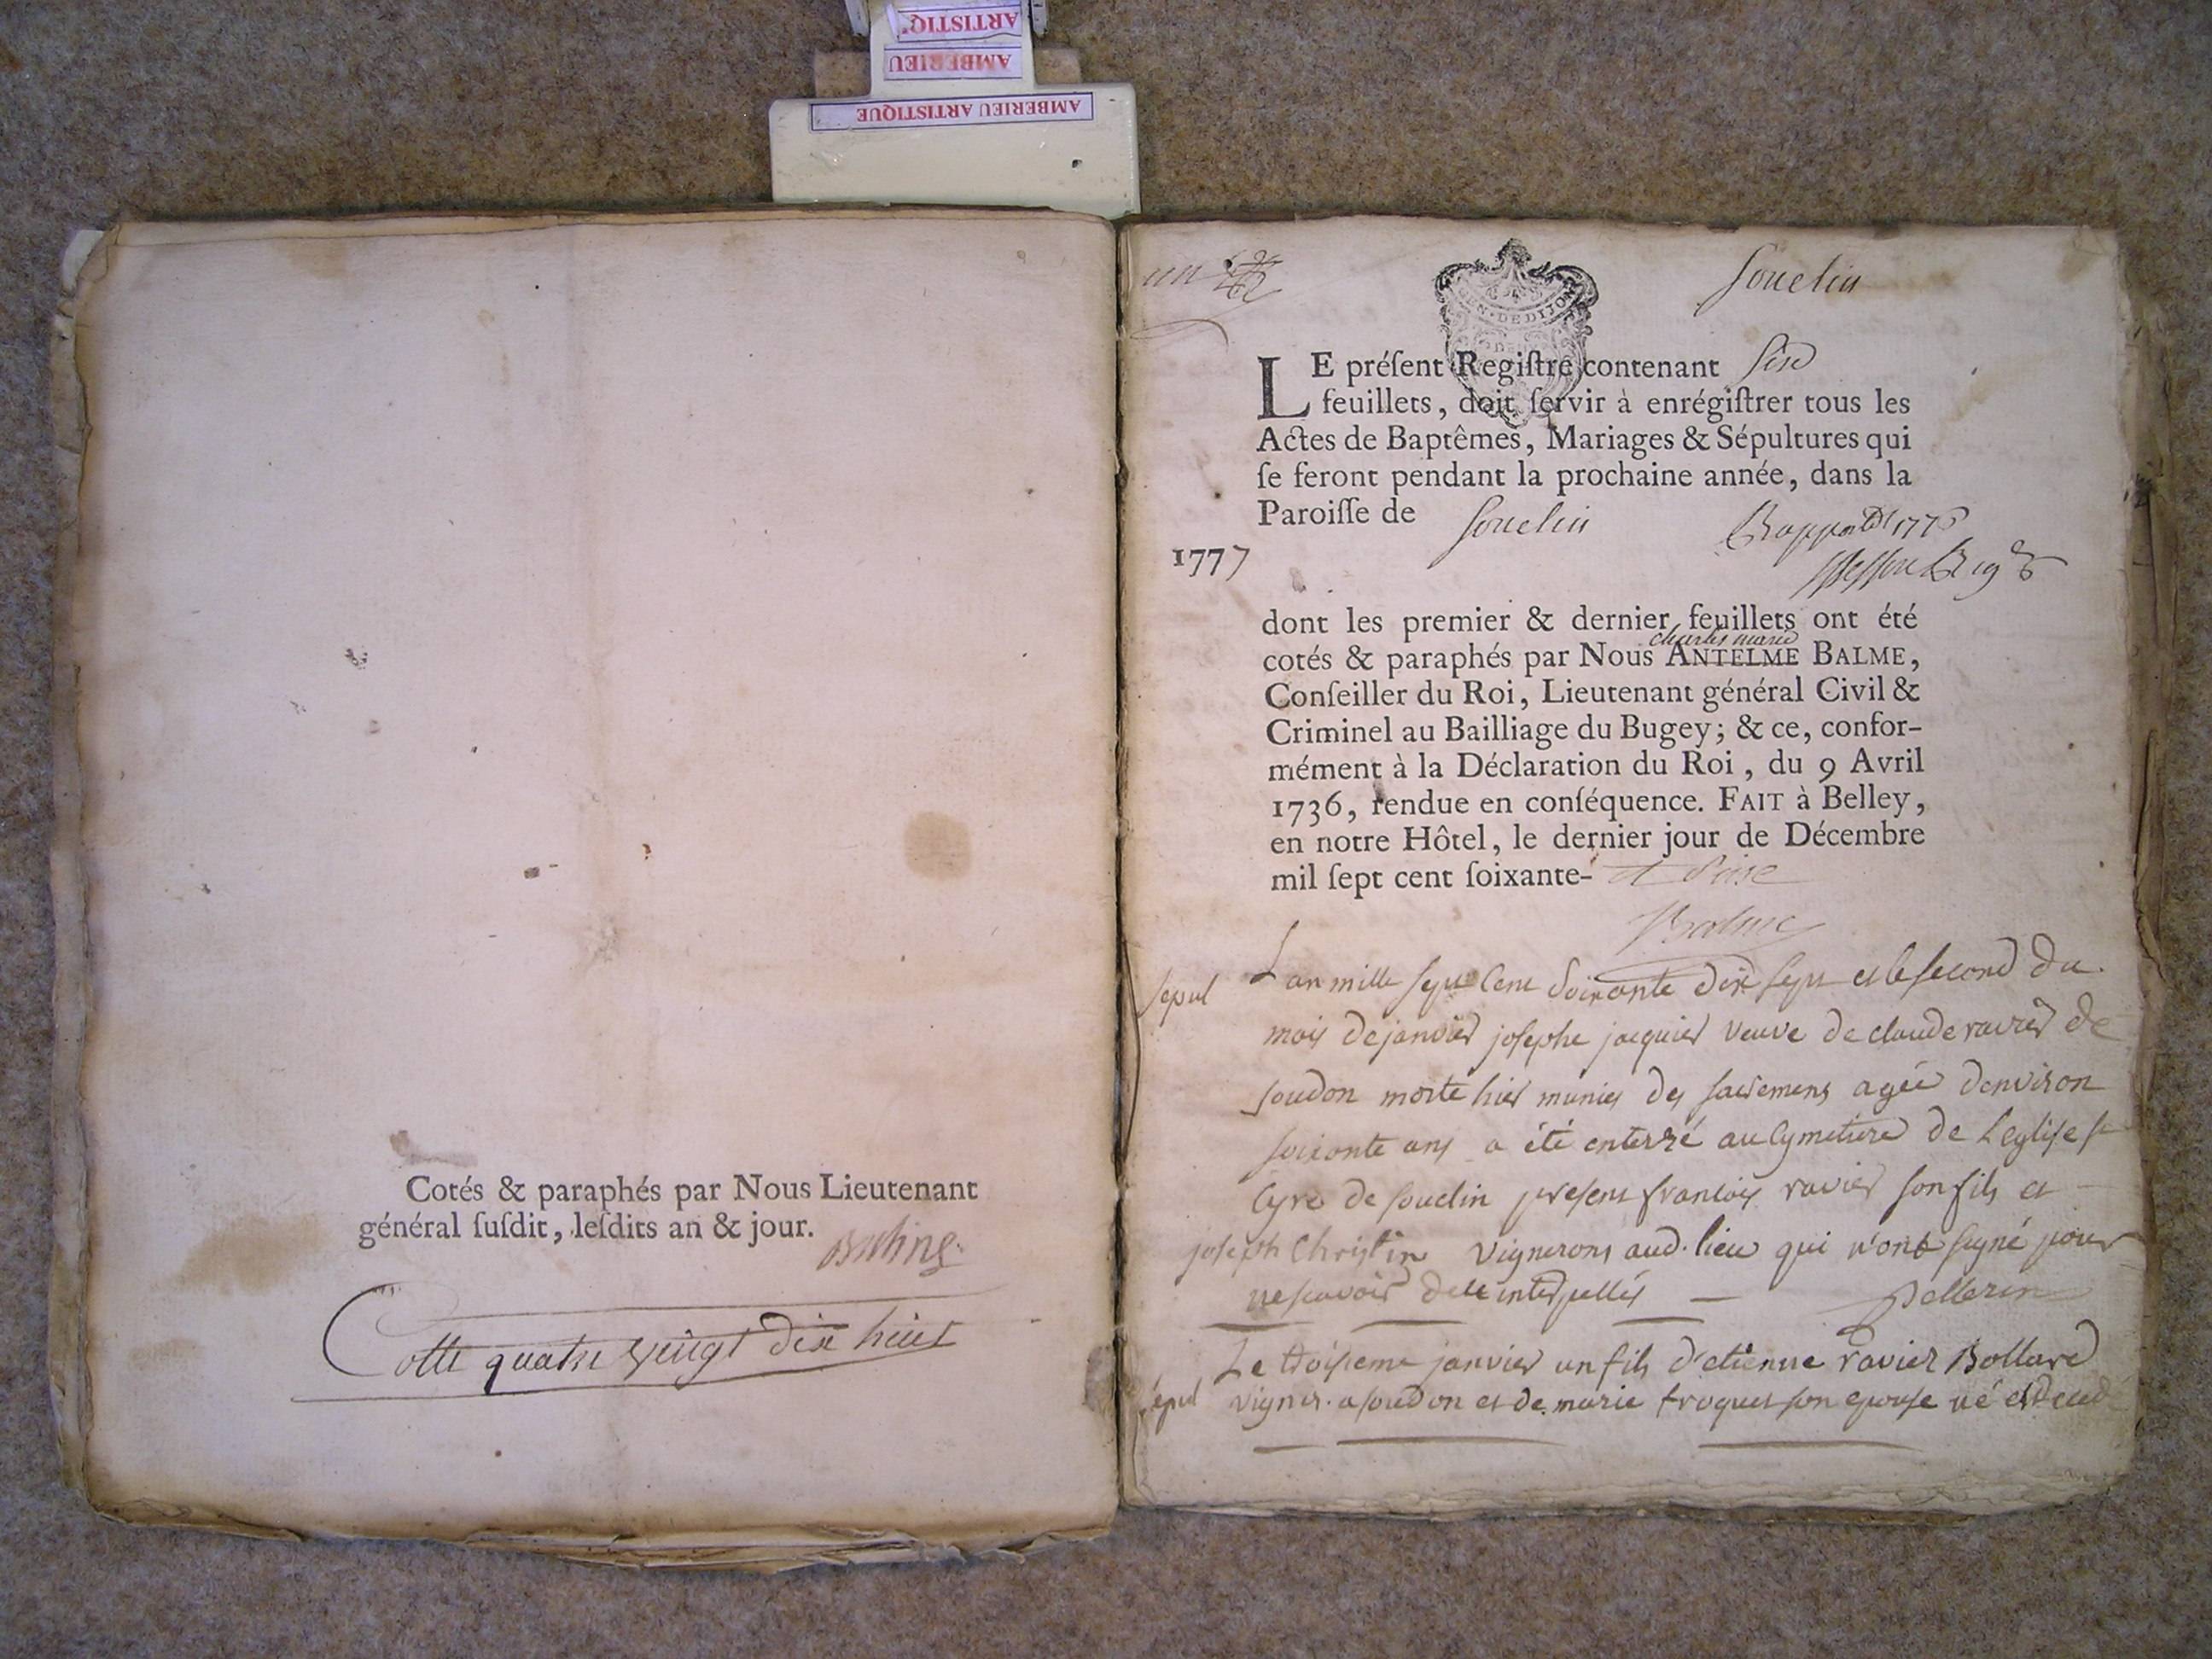 ARTISTIQ'
AMBERIEU
AMBERIEU ARTISTIQUE
Cotés & paraphés par Nous Lieutenant
général ſuſdit, leſdits an & jour.
Balme
Cotte quatre vingt dix huit
un
Souclin
GEN·DE DIJON
LE préſent Regiſtre contenant Six
feuillets, doit ſervir à enrégiſtrer tous les
Actes de Baptêmes, Mariages & Sépultures qui
ſe feront pendant la prochaine année, dans la
Paroiſſe de Souclin
1776
1777
dont les premier & dernier feuillets ont été
charles marie
cotés & paraphés par Nous ANTELME BALME,
Conſeiller du Roi, Lieutenant général Civil &
Criminel au Bailliage du Bugey; & ce, confor-
mément à la Déclaration du Roi, du 9 Avril
1736, rendue en conſéquence. FAIT à Belley,
en notre Hôtel, le dernier jour de Décembre
mil ſept cent ſoixante- et seize
Balme
sepul
L'an mille sept Cent Soixante dix sept et le second du
mois de janvier josephe jacquier veuve de claude ravier de
soudon morte hier munies des sacremens agée d'environ
soixonte ans a été enterré au Cymetiere de L'eglise st
Cyre de souclin present francois ravier son fils et
joseph Christin vignerons aud. lieu qui n'ont signé pour
ne scavoir de ce interpellés Pellerin
Le troisieme janvier un fils d'etienne ravier Bollard
sépul vigner. a soudon et de marie troquet son epouse né et